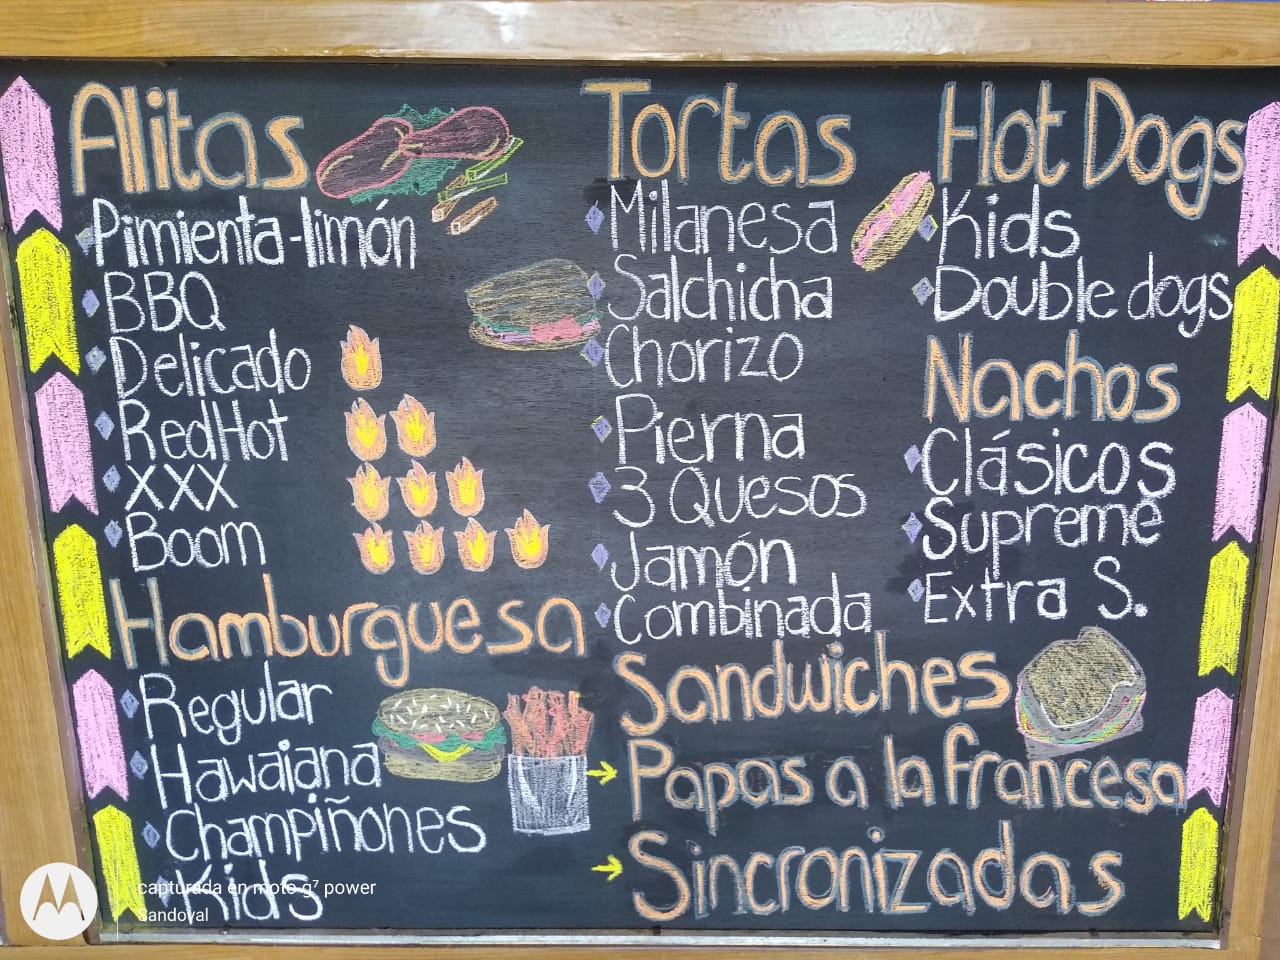 Alitas
Pimienta-limón
BBQ
Delicado
RedHot
XXX
Boom
Hamburguesa
Regular
Hawaiana
Champiñones
Kids
Tortas
Milanesa
Salchicha
Chorizo
Pierna
3 Quesos
Jamón
Combinada
Sandwiches
Papas a la francesa
Sincronizadas
Hot Dogs
Kids
Double dogs
Nachos
Clásicos
Supreme
Extra S.
capturada en moto g⁷ power
Sandoval